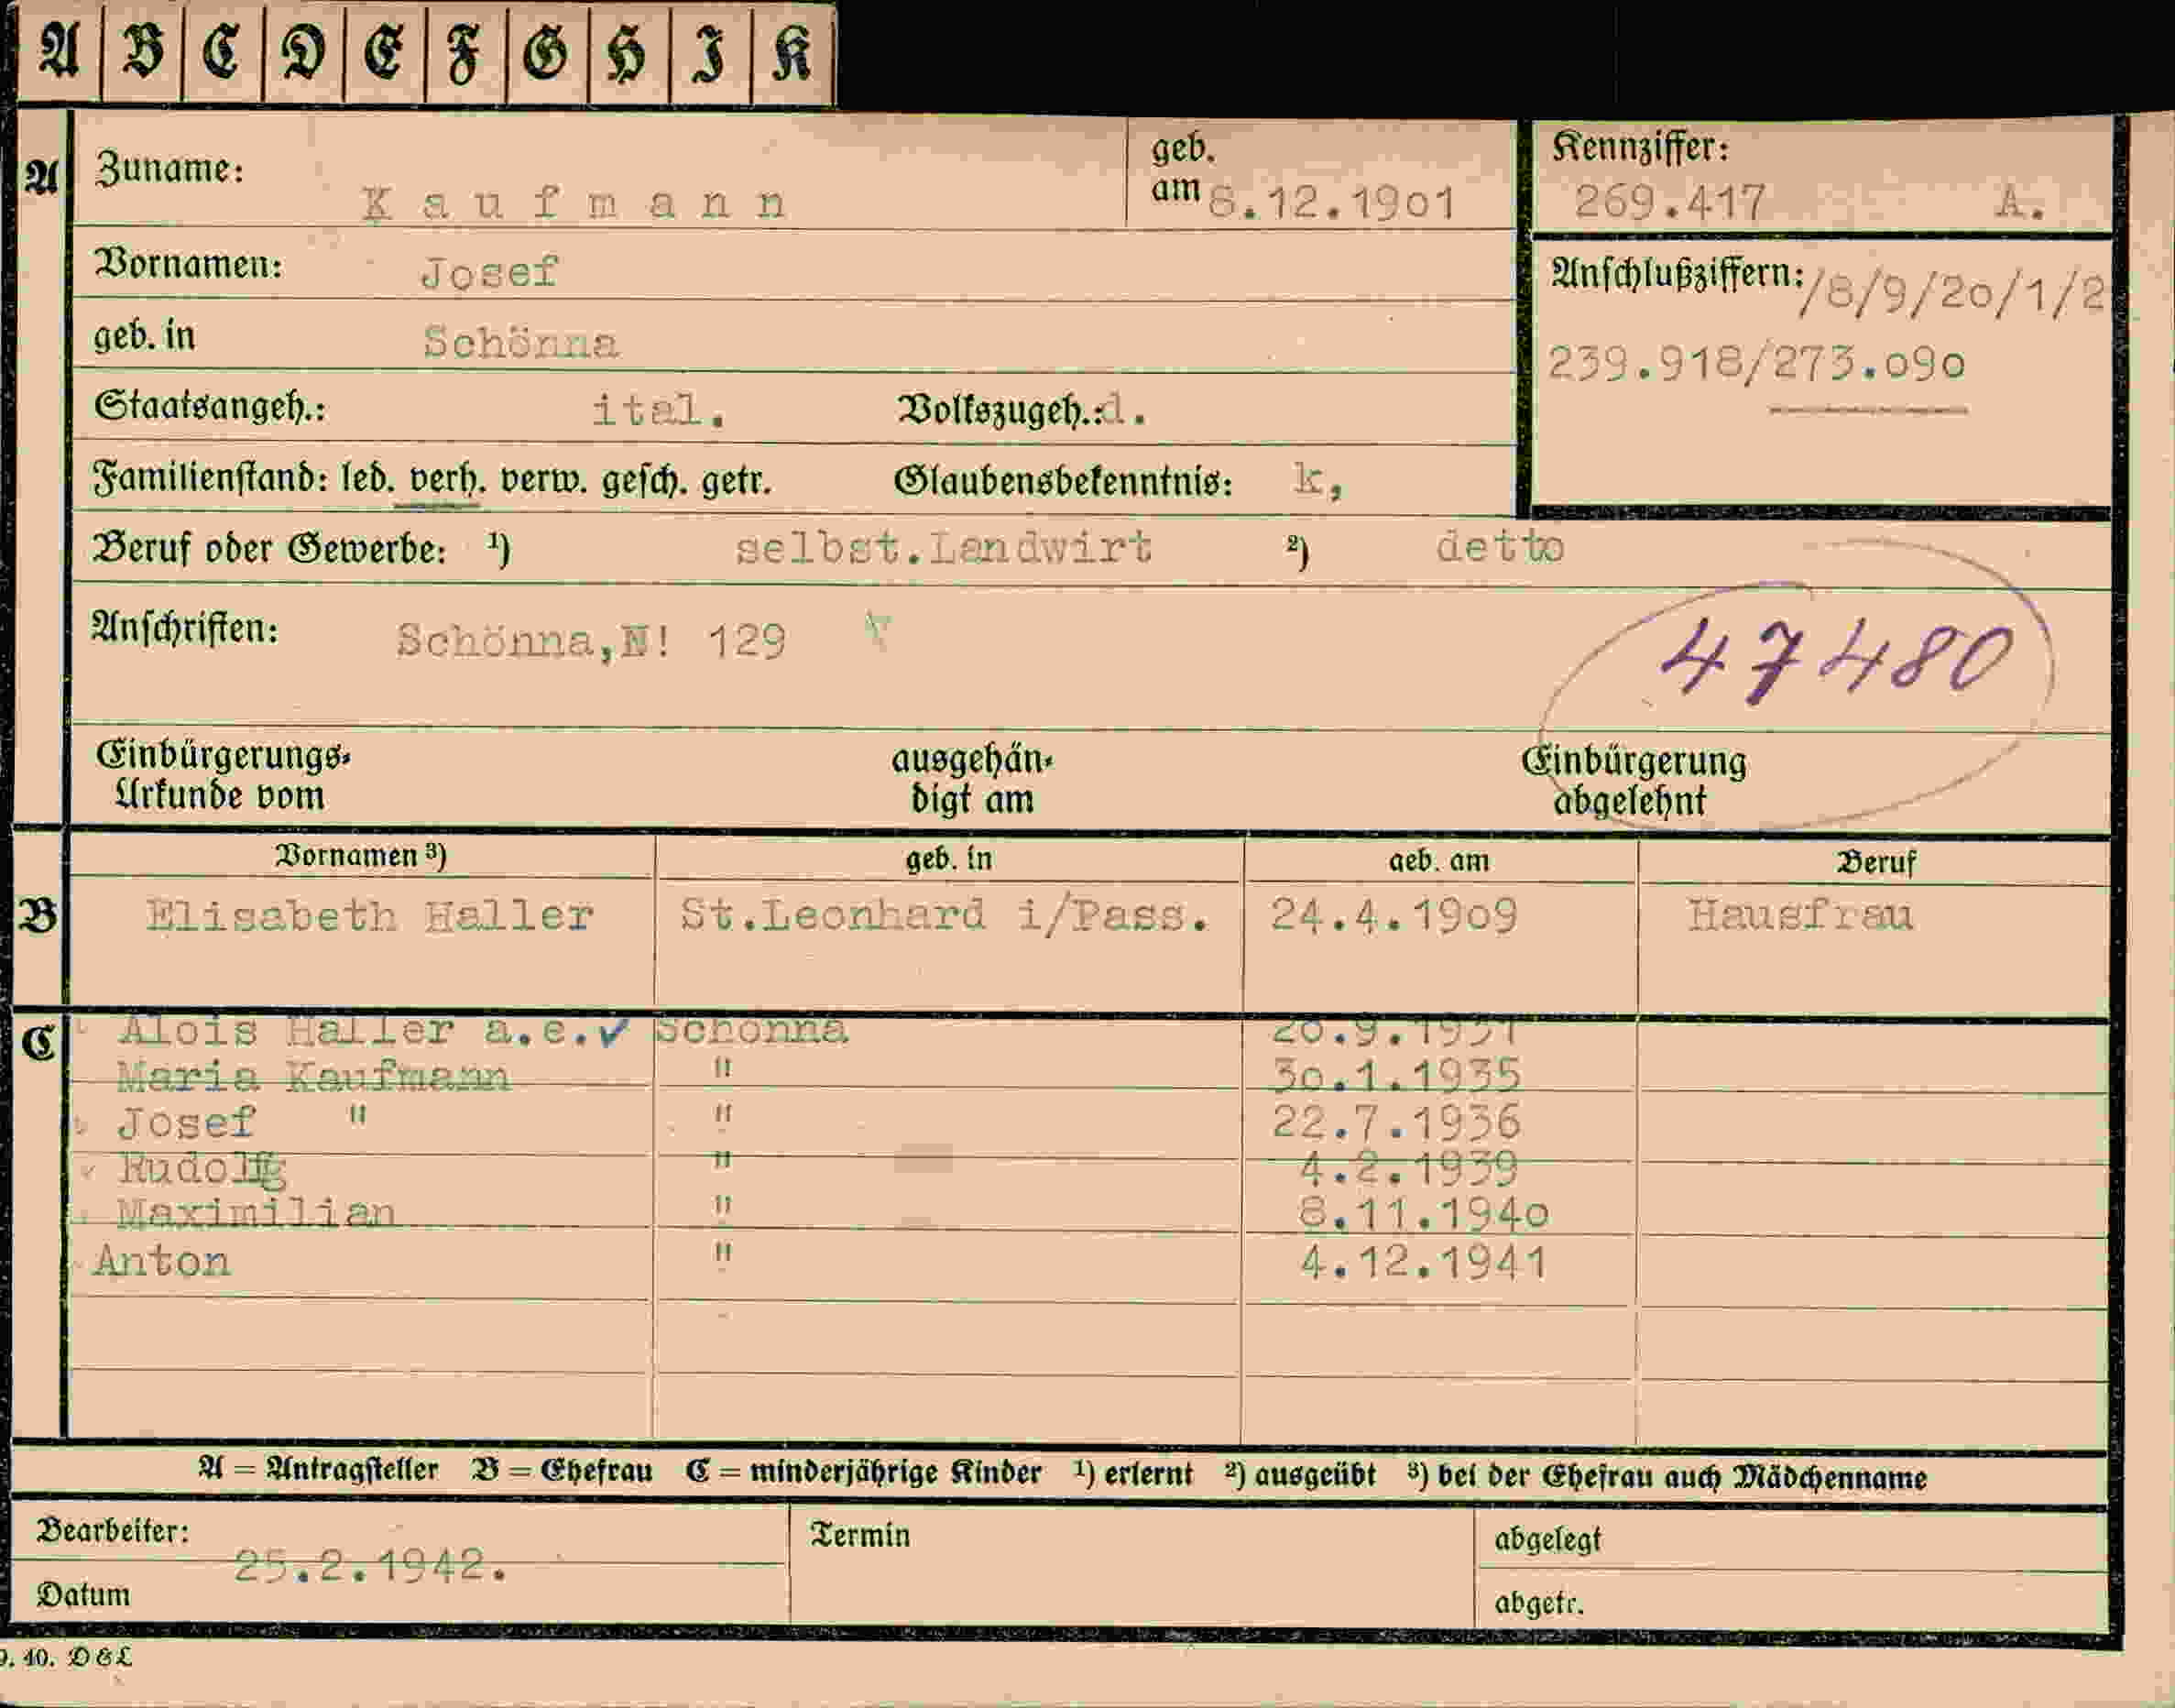 A B C D E F G H I K
A Zuname: Kaufmann geb. am 8.12.1901 Kennziffer: 269.417 A.
Vornamen: Josef Anschlußziffern: /8/9/20/1/2
geb. in Schönna 239.918/273.090
Staatsangeh.: ital. Volkszugeh.: d.
Familienstand: led. verh. verw. gesch. getr. Glaubensbekenntnis: k,
Beruf oder Gewerbe: ¹) selbst.Landwirt ²) detto
Anschriften: Schönna,N! 129 47480
Einbürgerungs- ausgehän- Einbürgerung
Urkunde vom digt am abgelehnt
Vornamen ³) geb. in geb. am Beruf
B Elisabeth Haller St.Leonhard i/Pass. 24.4.1909 Hausfrau
C Alois Haller a.e. ✓ Schönna 20.9.1931
Maria Kaufmann " 30.1.1935
Josef " " 22.7.1936
Rudolf " 4.2.1939
Maximilian " 8.11.1940
Anton " 4.12.1941
A = Antragsteller B = Ehefrau C = minderjährige Kinder ¹) erlernt ²) ausgeübt ³) bei der Ehefrau auch Mädchenname
Bearbeiter: Termin abgelegt
25.2.1942.
Datum abgetr.
9. 40. D&L